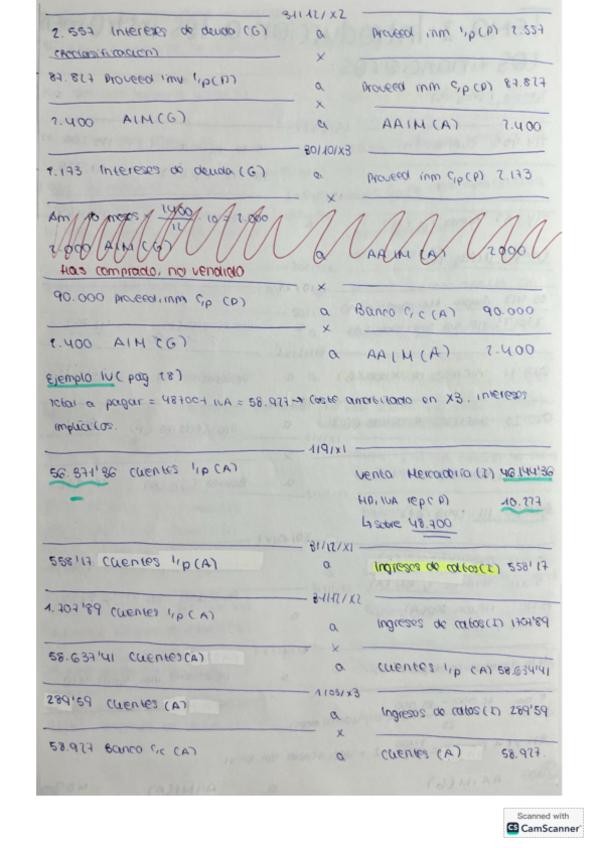 31/12/X2
2.557 Intereses de deuda (G) a Proveed inm l/p (P) 2.557
(Reclasificación) x
87.827 Proveed inv l/p (P) a Proveed inm c/p (P) 87.827
x
2.400 AIM (G) a AAIM (A) 2.400
30/10/X3
2.173 Intereses de deuda (G) a Proveed inm c/p (P) 2.173
x
Am 10 meses 10 = 2.000
2.000 AIM (G) a AAIM (A) 2000
Has comprado, no vendido x
90.000 Proveed. inm c/p (P) a Banco c/c (A) 90.000
x
2.400 AIM (G) a AAIM (A) 2.400
Ejemplo IV (pag 28)
Total a pagar = 48700 + IVA = 58.927 → Coste amortizado en X3. intereses
implícitos.
1/9/X1
56.371'36 Clientes l/p (A) Venta Mercadería (I) 46.144'36
HP, IVA rep (P) 10.227
↳ sobre 48.700
31/12/X1
558'17 Clientes l/p (A) a Ingresos de catos (I) 558'17
31/12/X2
1.707'89 Clientes l/p (A) a Ingresos de catos (I) 1707'89
x
58.637'41 Clientes (A) a Clientes l/p (A) 58.637'41
1/03/X3
289'59 Clientes (A) a Ingresos de catos (I) 289'59
x
58.927 Banco c/c (A) a Clientes (A) 58.927.
Scanned with
CS CamScanner